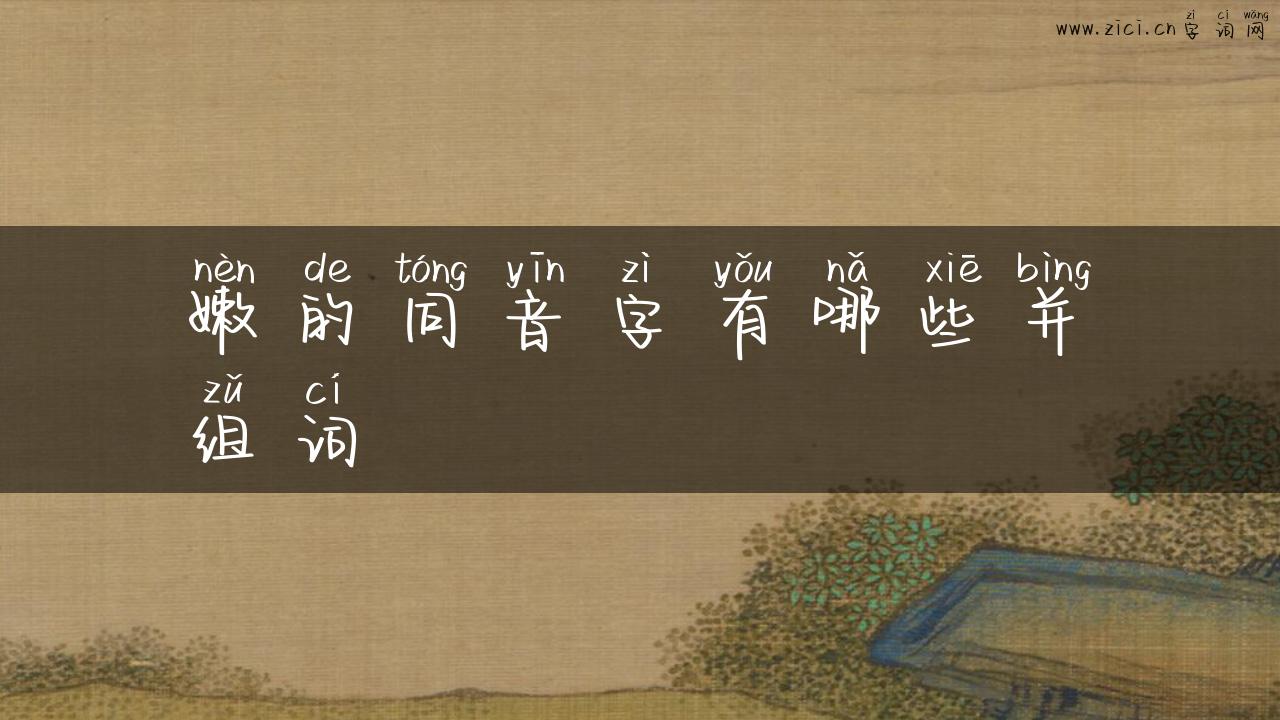 zì cí wǎng
www.zici.cn字词网
nèn de tóng yīn zì yǒu nǎ xiē bìng
嫩的同音字有哪些并
zǔ cí
组词